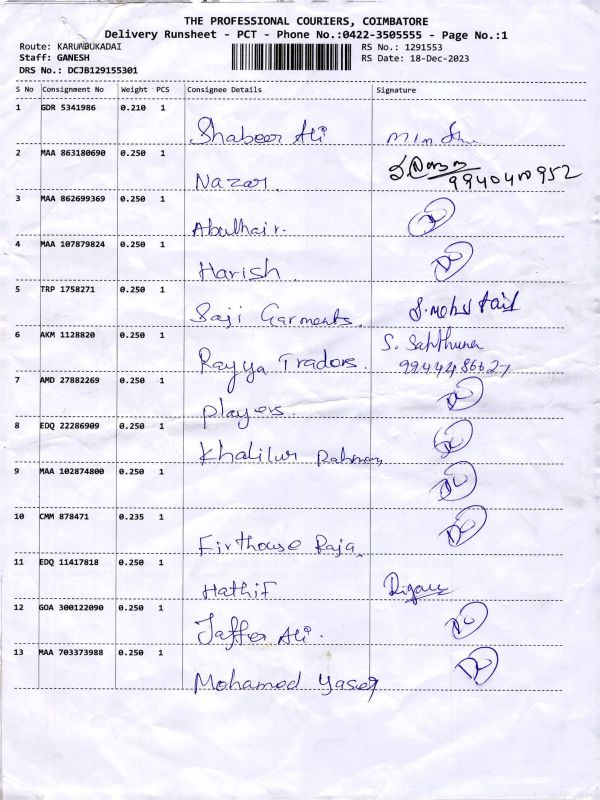 THE PROFESSIONAL COURIERS, COIMBATORE
Delivery Runsheet - PCT - Phone No.:0422-3505555 - Page No.:1
Route: KARUMBUKADAI
RS No.: 1291553
Staff: GANESH
RS Date: 18-Dec-2023
DRS No.: DCJB129155301
S No Consignment No Weight PCS Consignee Details Signature
1 GDR 5341986 0.210 1
Shabeer Ali
2 MAA 863180690 0.250 1
Nazar. 9940400952
3 MAA 862699369 0.250 1
Abulhair.
4 MAA 107879824 0.250 1
Harish.
5 TRP 1758271 0.250 1
Saji Garments.
6 AKM 1128820 0.250 1
Rayya Traders. 9944486627
7 AMD 27882269 0.250 1
players.
8 EDQ 22286909 0.250 1
Khalilur Rahman
9 MAA 102874800 0.250 1
10 CMM 878471 0.235 1
Firthouse Raja.
11 EDQ 11417818 0.250 1
Hathif
12 GOA 300122090 0.250 1
Jaffer Ali.
13 MAA 703373988 0.250 1
Mohamed Yaser